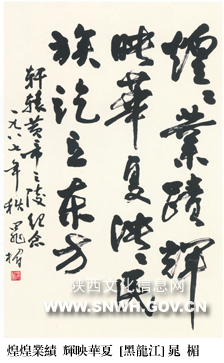 煌〻業蹟輝
映華夏泱〻民
族訖立东方
轩辕黄帝之陵纪念
一九八七年秋 晁楣
陕西文化信息网
WWW.SNWH.GOV.CN
煌煌業績 輝映華夏 [黑龍江] 晁 楣